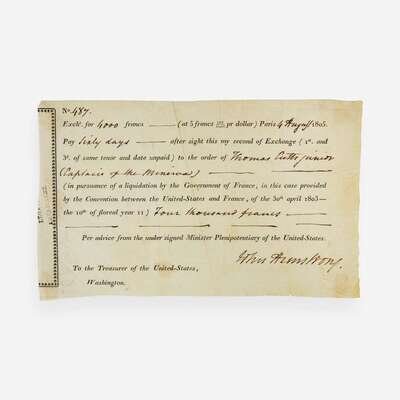 No. 487.
Exch. for 4000 francs — (at 5 francs 333/1000 pr dollar) Paris 4 August 1805.
Pay Sixty days — after sight this my second of Exchange ( 1st. and
3d. of same tenor and date unpaid) to the order of Thomas Cutts junior
(Captain of the Minerva) —
(in pursuance of a liquidation by the Government of France, in this case provided
by the Convention between the United States and France, of the 30th april 1803—
the 10th of floreal year 11) Four thousand francs —
Per advice from the under signed Minister Plenipotentiary of the United-States.
John Armstrong.
To the Treasurer of the United-States,
Washington.